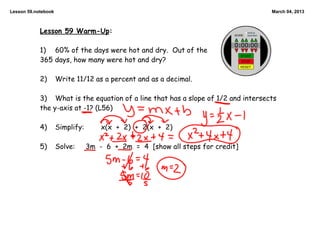 Lesson 59.notebook
March 04, 2013
Lesson 59 Warm-Up:
1) 60% of the days were hot and dry. Out of the
365 days, how many were hot and dry?
2) Write 11/12 as a percent and as a decimal.
3) What is the equation of a line that has a slope of 1/2 and intersects
the y-axis at -1? (L56)
y = mx + b
y = 1/2 x - 1
4) Simplify: x(x + 2) + 2(x + 2)
x² + 2x + 2x + 4 = x² + 4x + 4
5) Solve: 3m - 6 + 2m = 4 [show all steps for credit]
5m - 6 = 4
+6 +6
5m = 10
5 5
m = 2